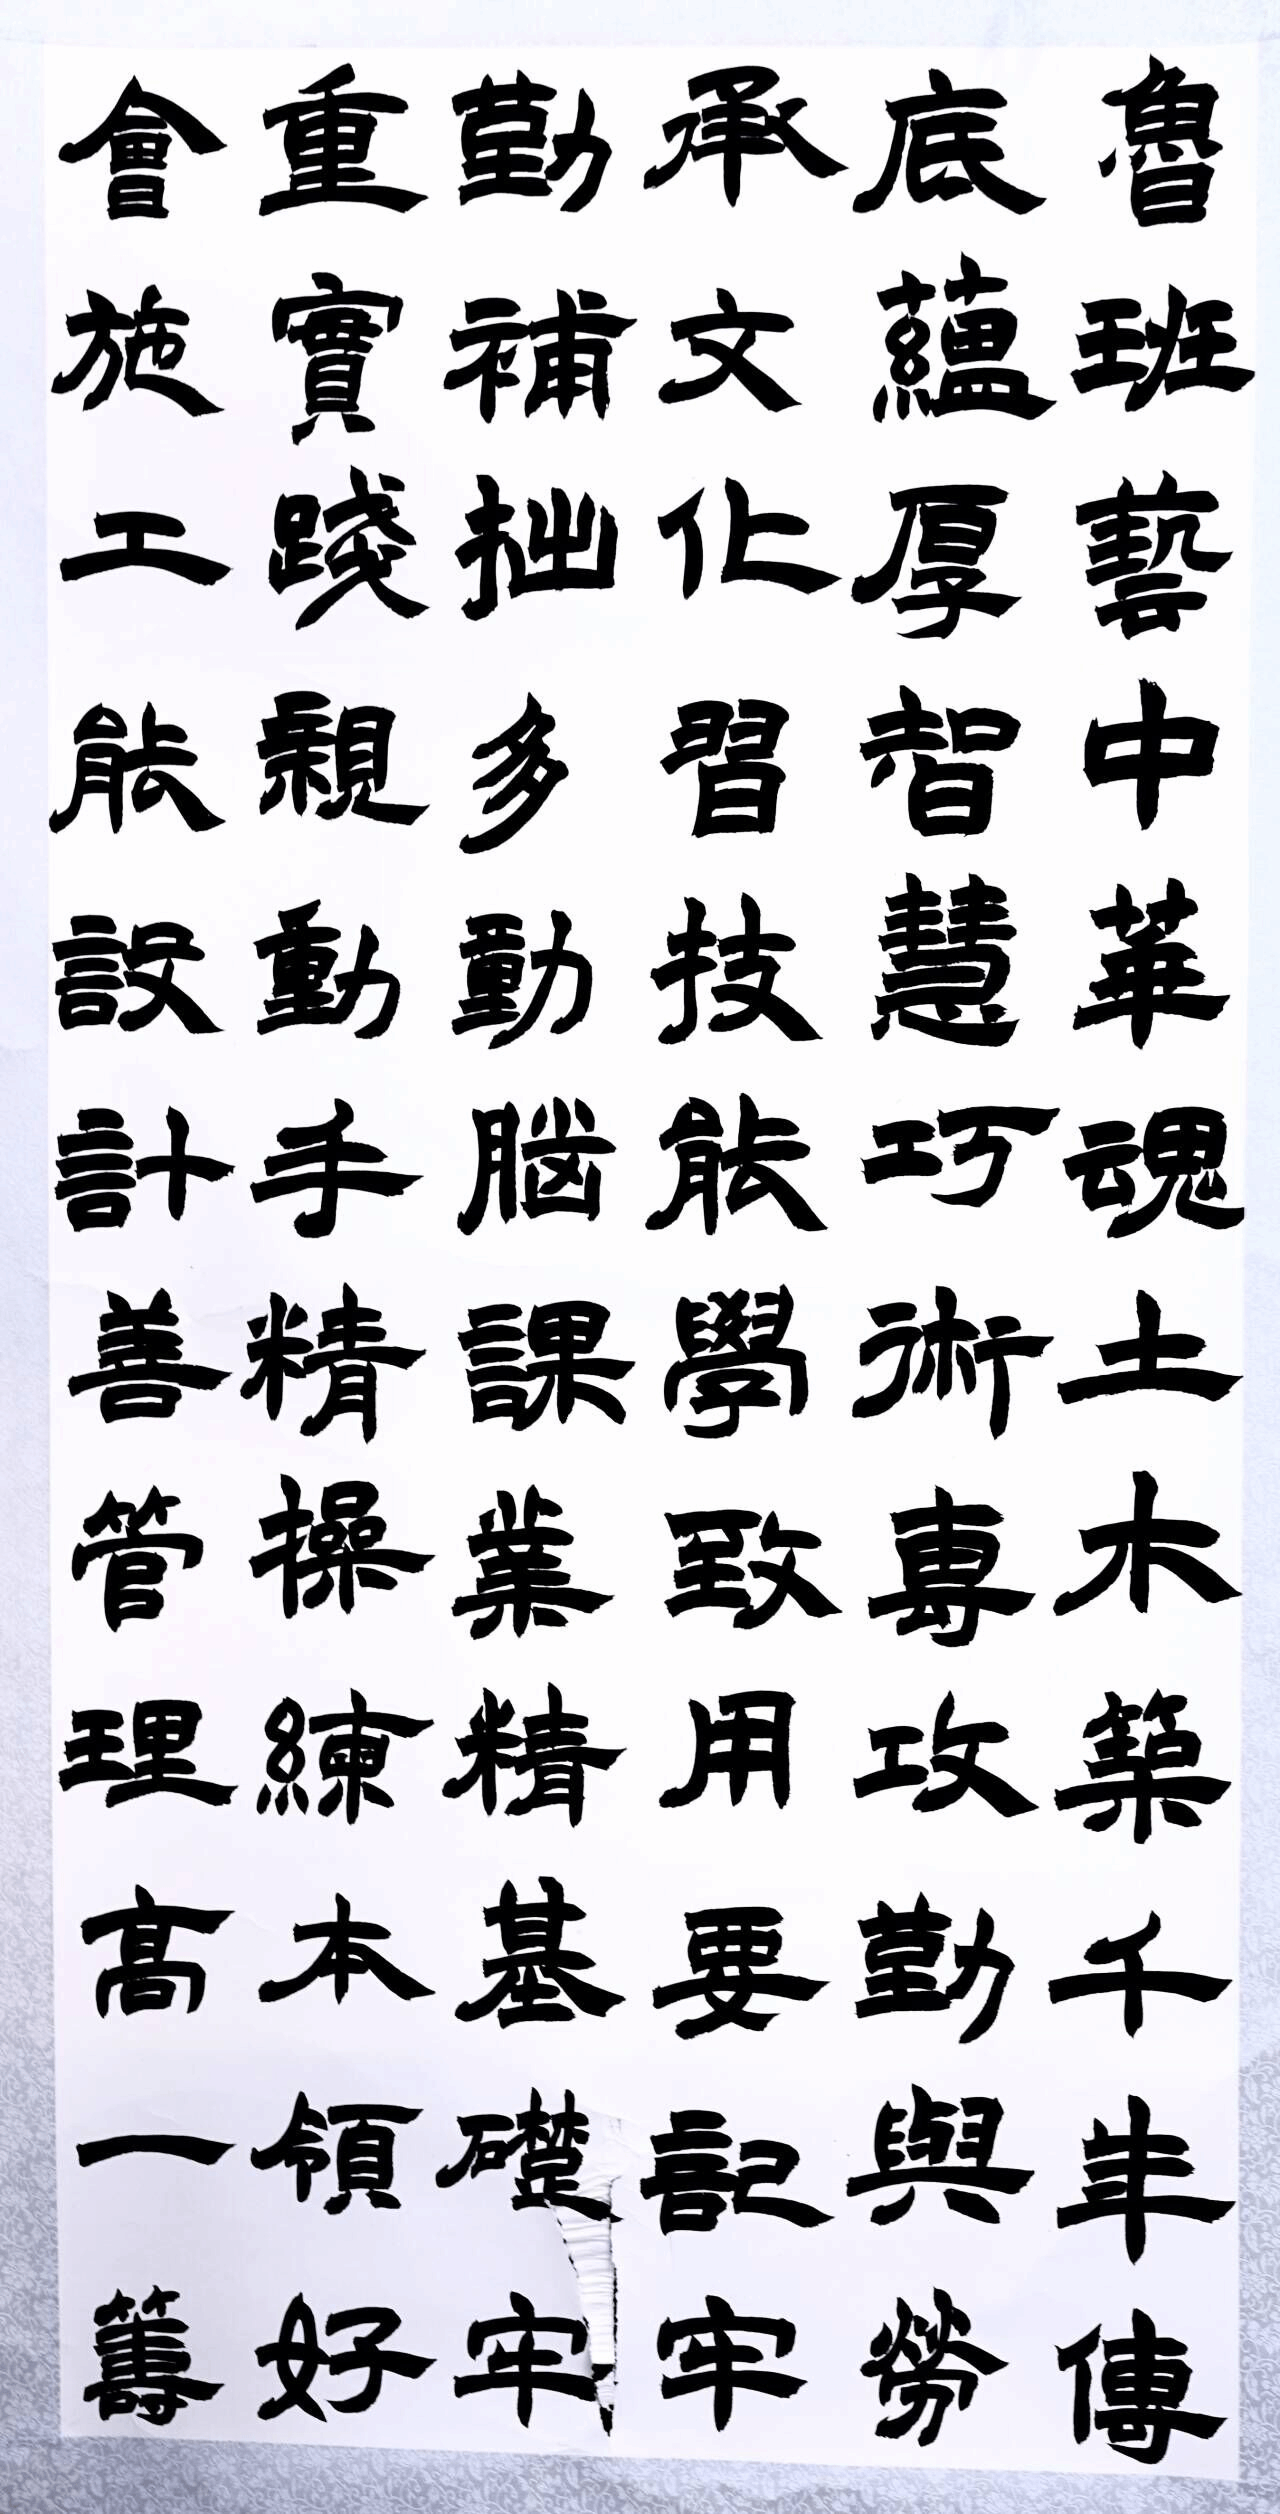 魯班藝中華魂土木築千年傳
底蘊厚智慧巧術專攻勤與勞
承文化習技能學致用要記牢
勤補拙多動腦課業精基礎牢
重實踐親動手精操練本領好
會施工能設計善管理高一籌